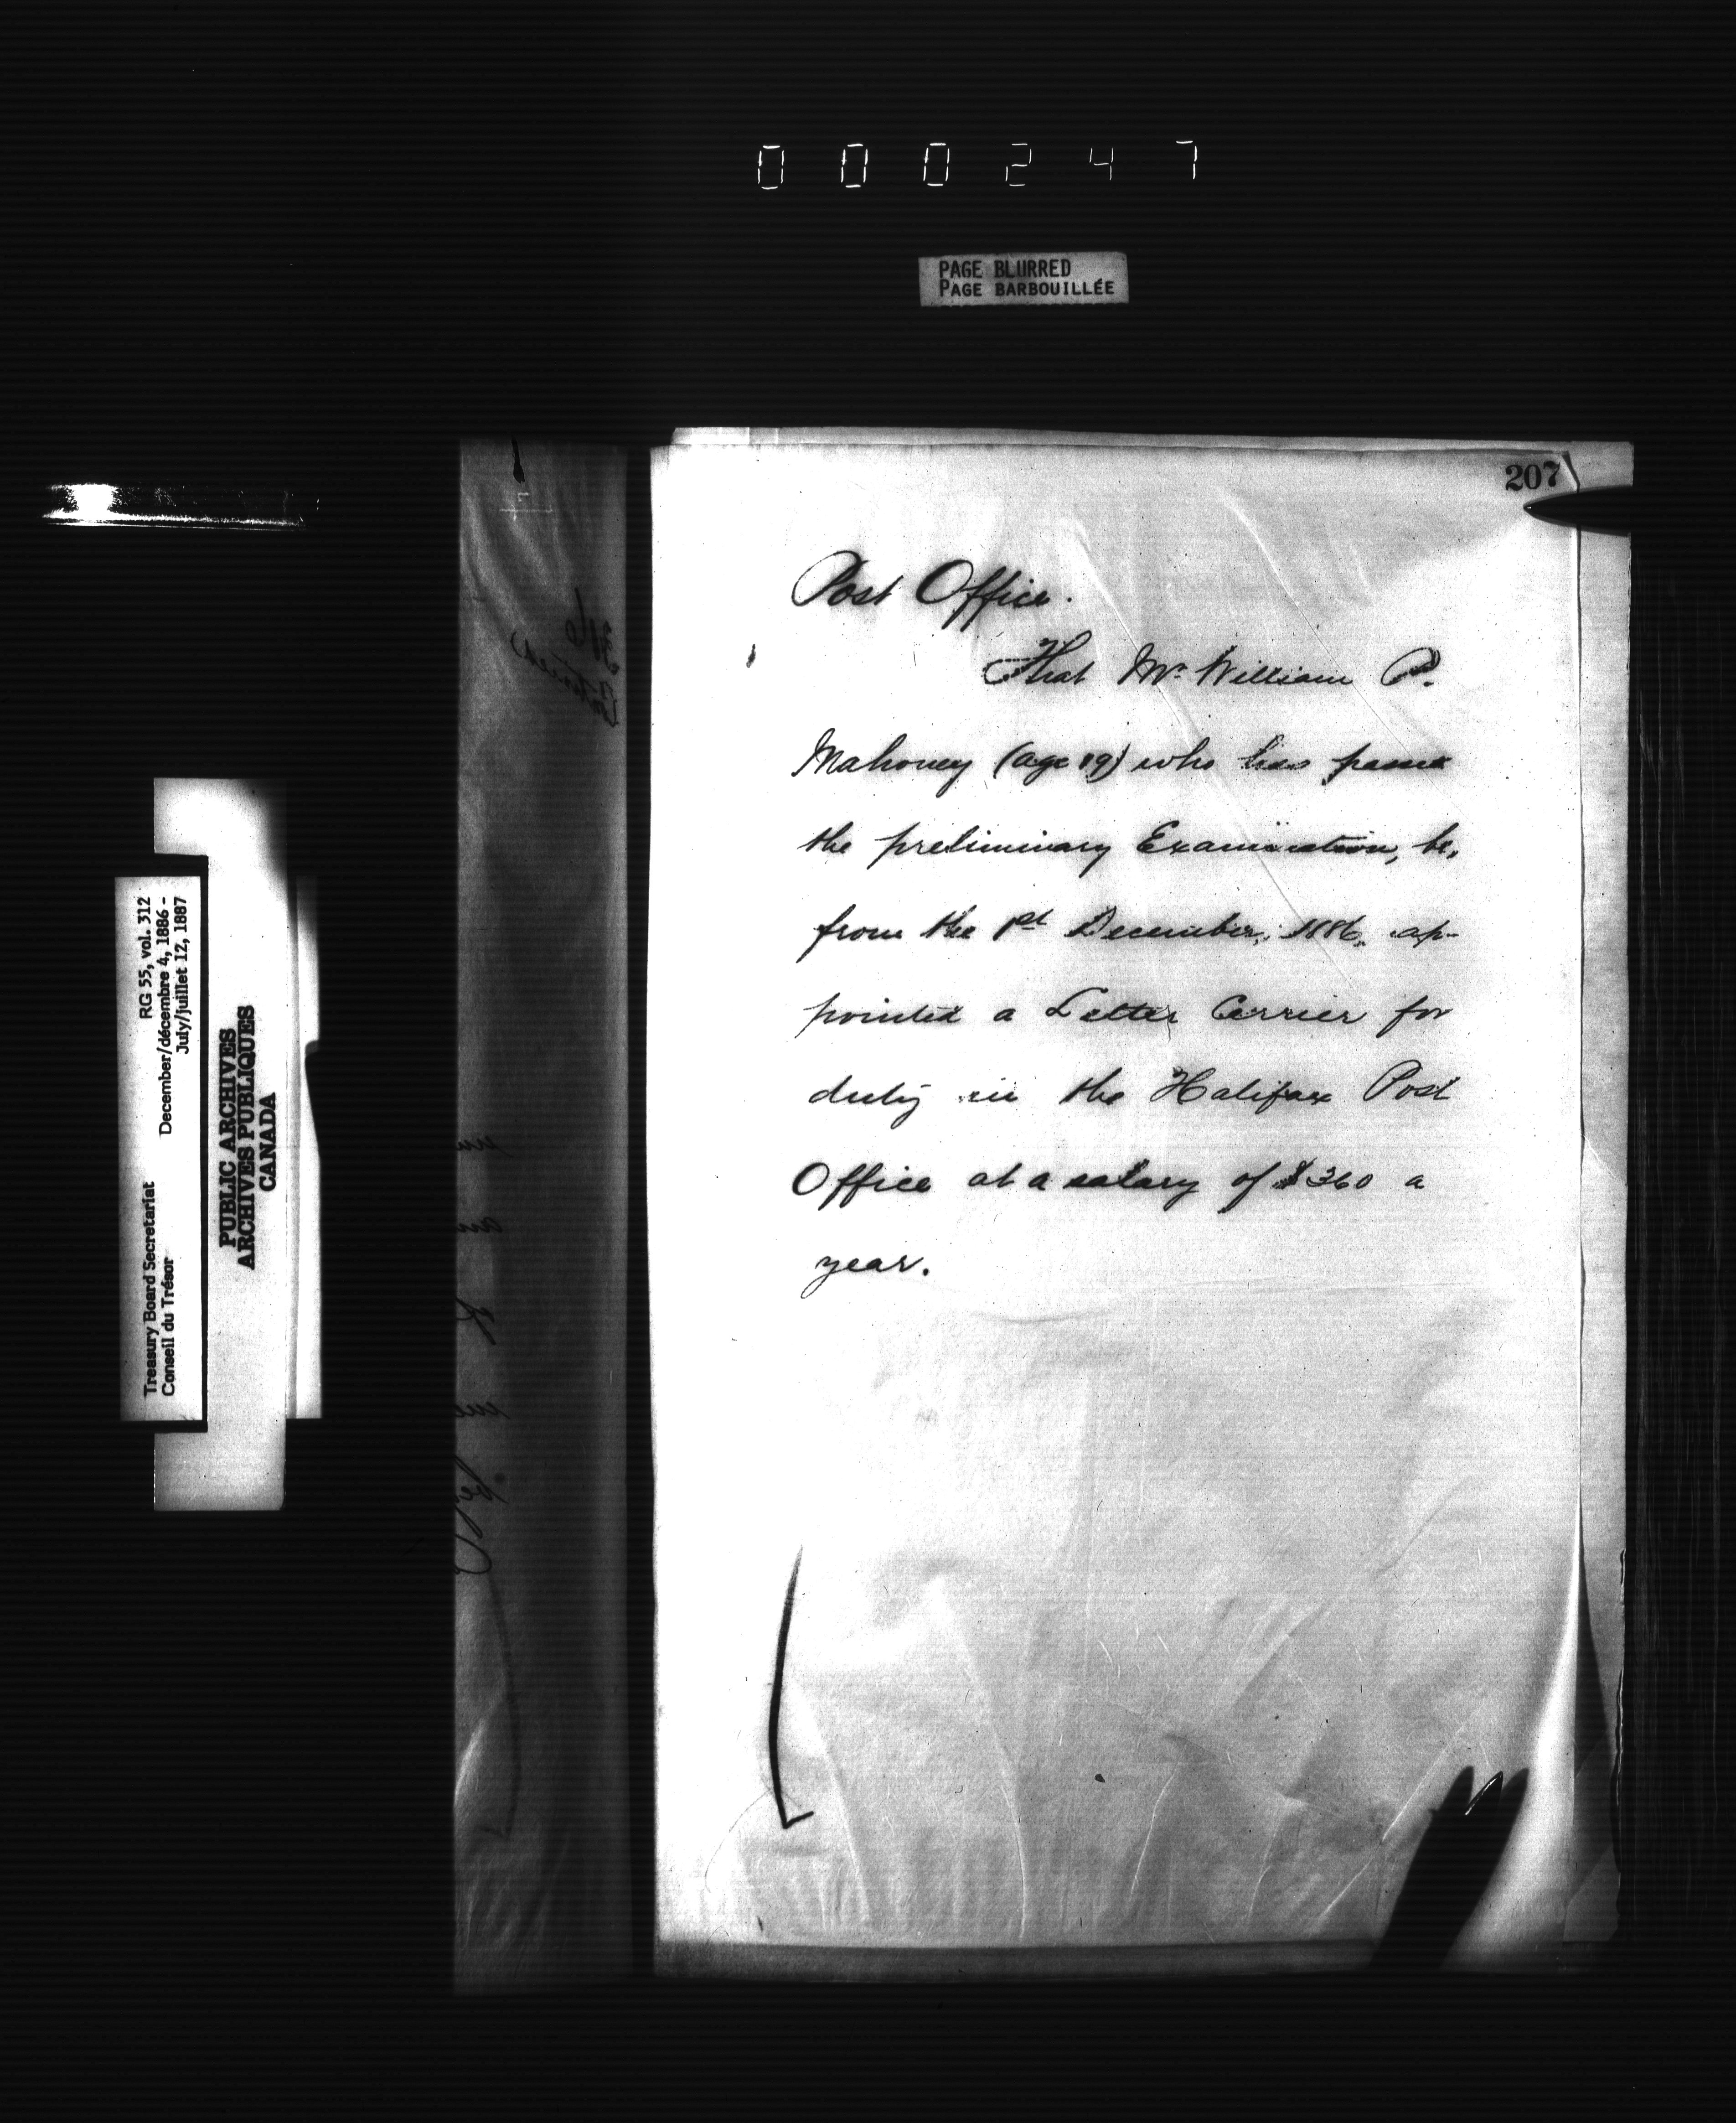 000247
PAGE BLURRED
PAGE BARBOUILLÉE
207
Post Office.
That Mr. William P.
Mahoney (age 19) who has passed
the preliminary Examination, be,
from the 1st December, 1886, ap-
pointed a Letter Carrier for
duty in the Halifax Post
Office at a salary of $360 a
year.
Treasury Board Secretariat RG 55, vol. 312
Conseil du Trésor December/décembre 4, 1886 -
July/juillet 12, 1887
PUBLIC ARCHIVES
ARCHIVES PUBLIQUES
CANADA